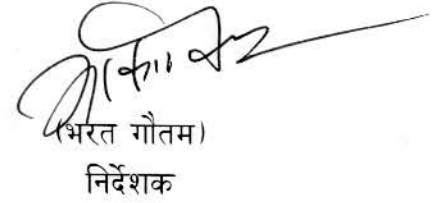 (भरत गौतम)
निर्देशक